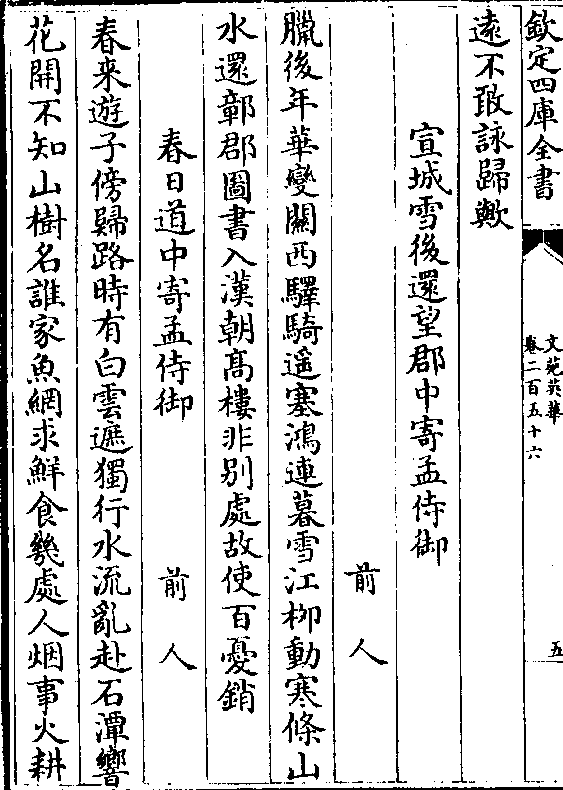 欽定四庫全書
文苑英華
卷二百五十六
五
遠不敢詠歸歟
宣城雪後還望郡中寄孟侍御
前人
臘後年華變關西驛騎遥塞鴻連暮雪江栁動寒條山
水還鄣郡圖書入漢朝髙樓非别處故使百憂銷
春日道中寄孟侍御
前人
春来遊子傍歸路時有白雲遮獨行水流亂赴石潭響
花開不知山樹名誰家魚網求鮮食幾處人烟事火耕